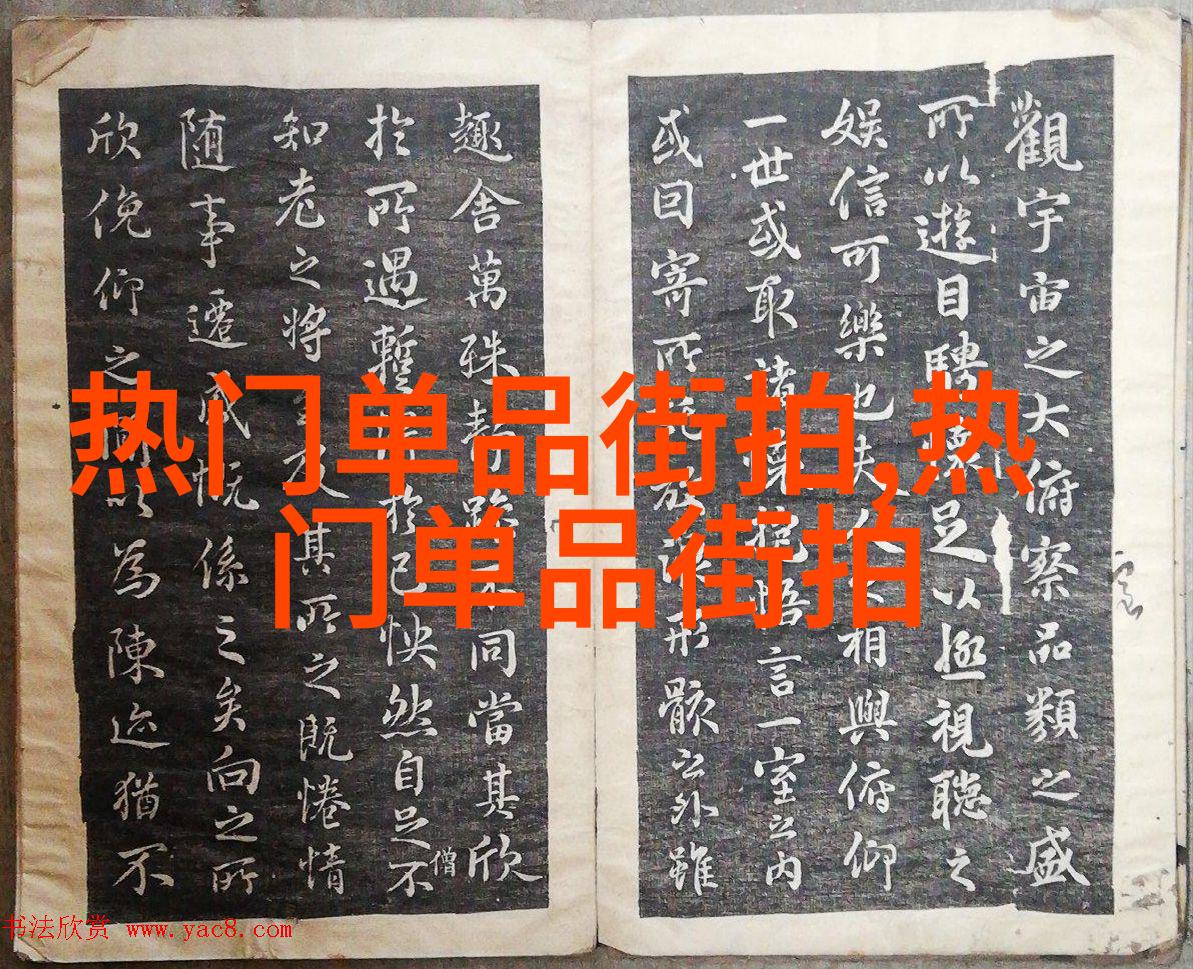 热门单品街拍,热
门单品街拍
觀宇宙之大俯察品類之盛
所以遊目騁懷足以極視聽之
娛信可樂也夫人相與俯仰
一世或取諸懷抱悟言一室之内
或因寄所託放浪形骸之外雖
趣舍萬殊静躁不同當其欣
於所遇蹔得於己怏然自足不
僧
知老之將至及其所之既惓情
随事遷感慨係之矣向之所
欣俛仰之間以為陳迹猶不
书法欣赏 www.yac8.com